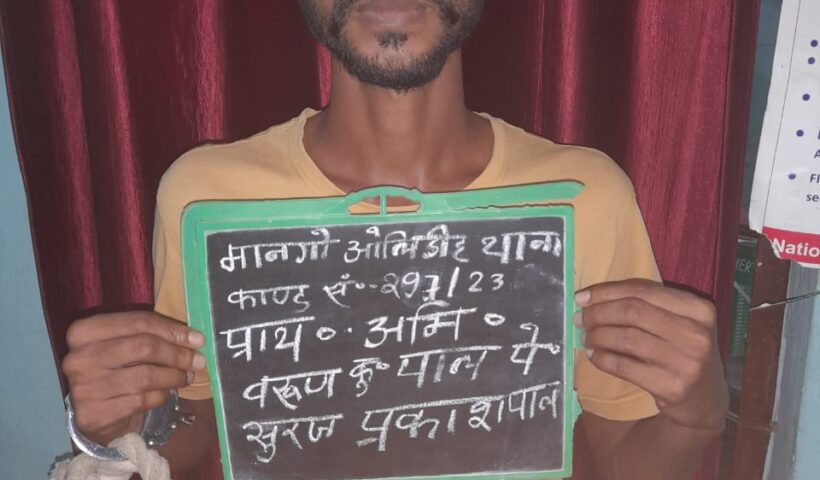 मानगो ओलिडीह थाना
काण्ड सं०-297/23
प्राथ० अभि०
वरूण कु० पाल पे०
सुरज प्रकाश पाल
Natio